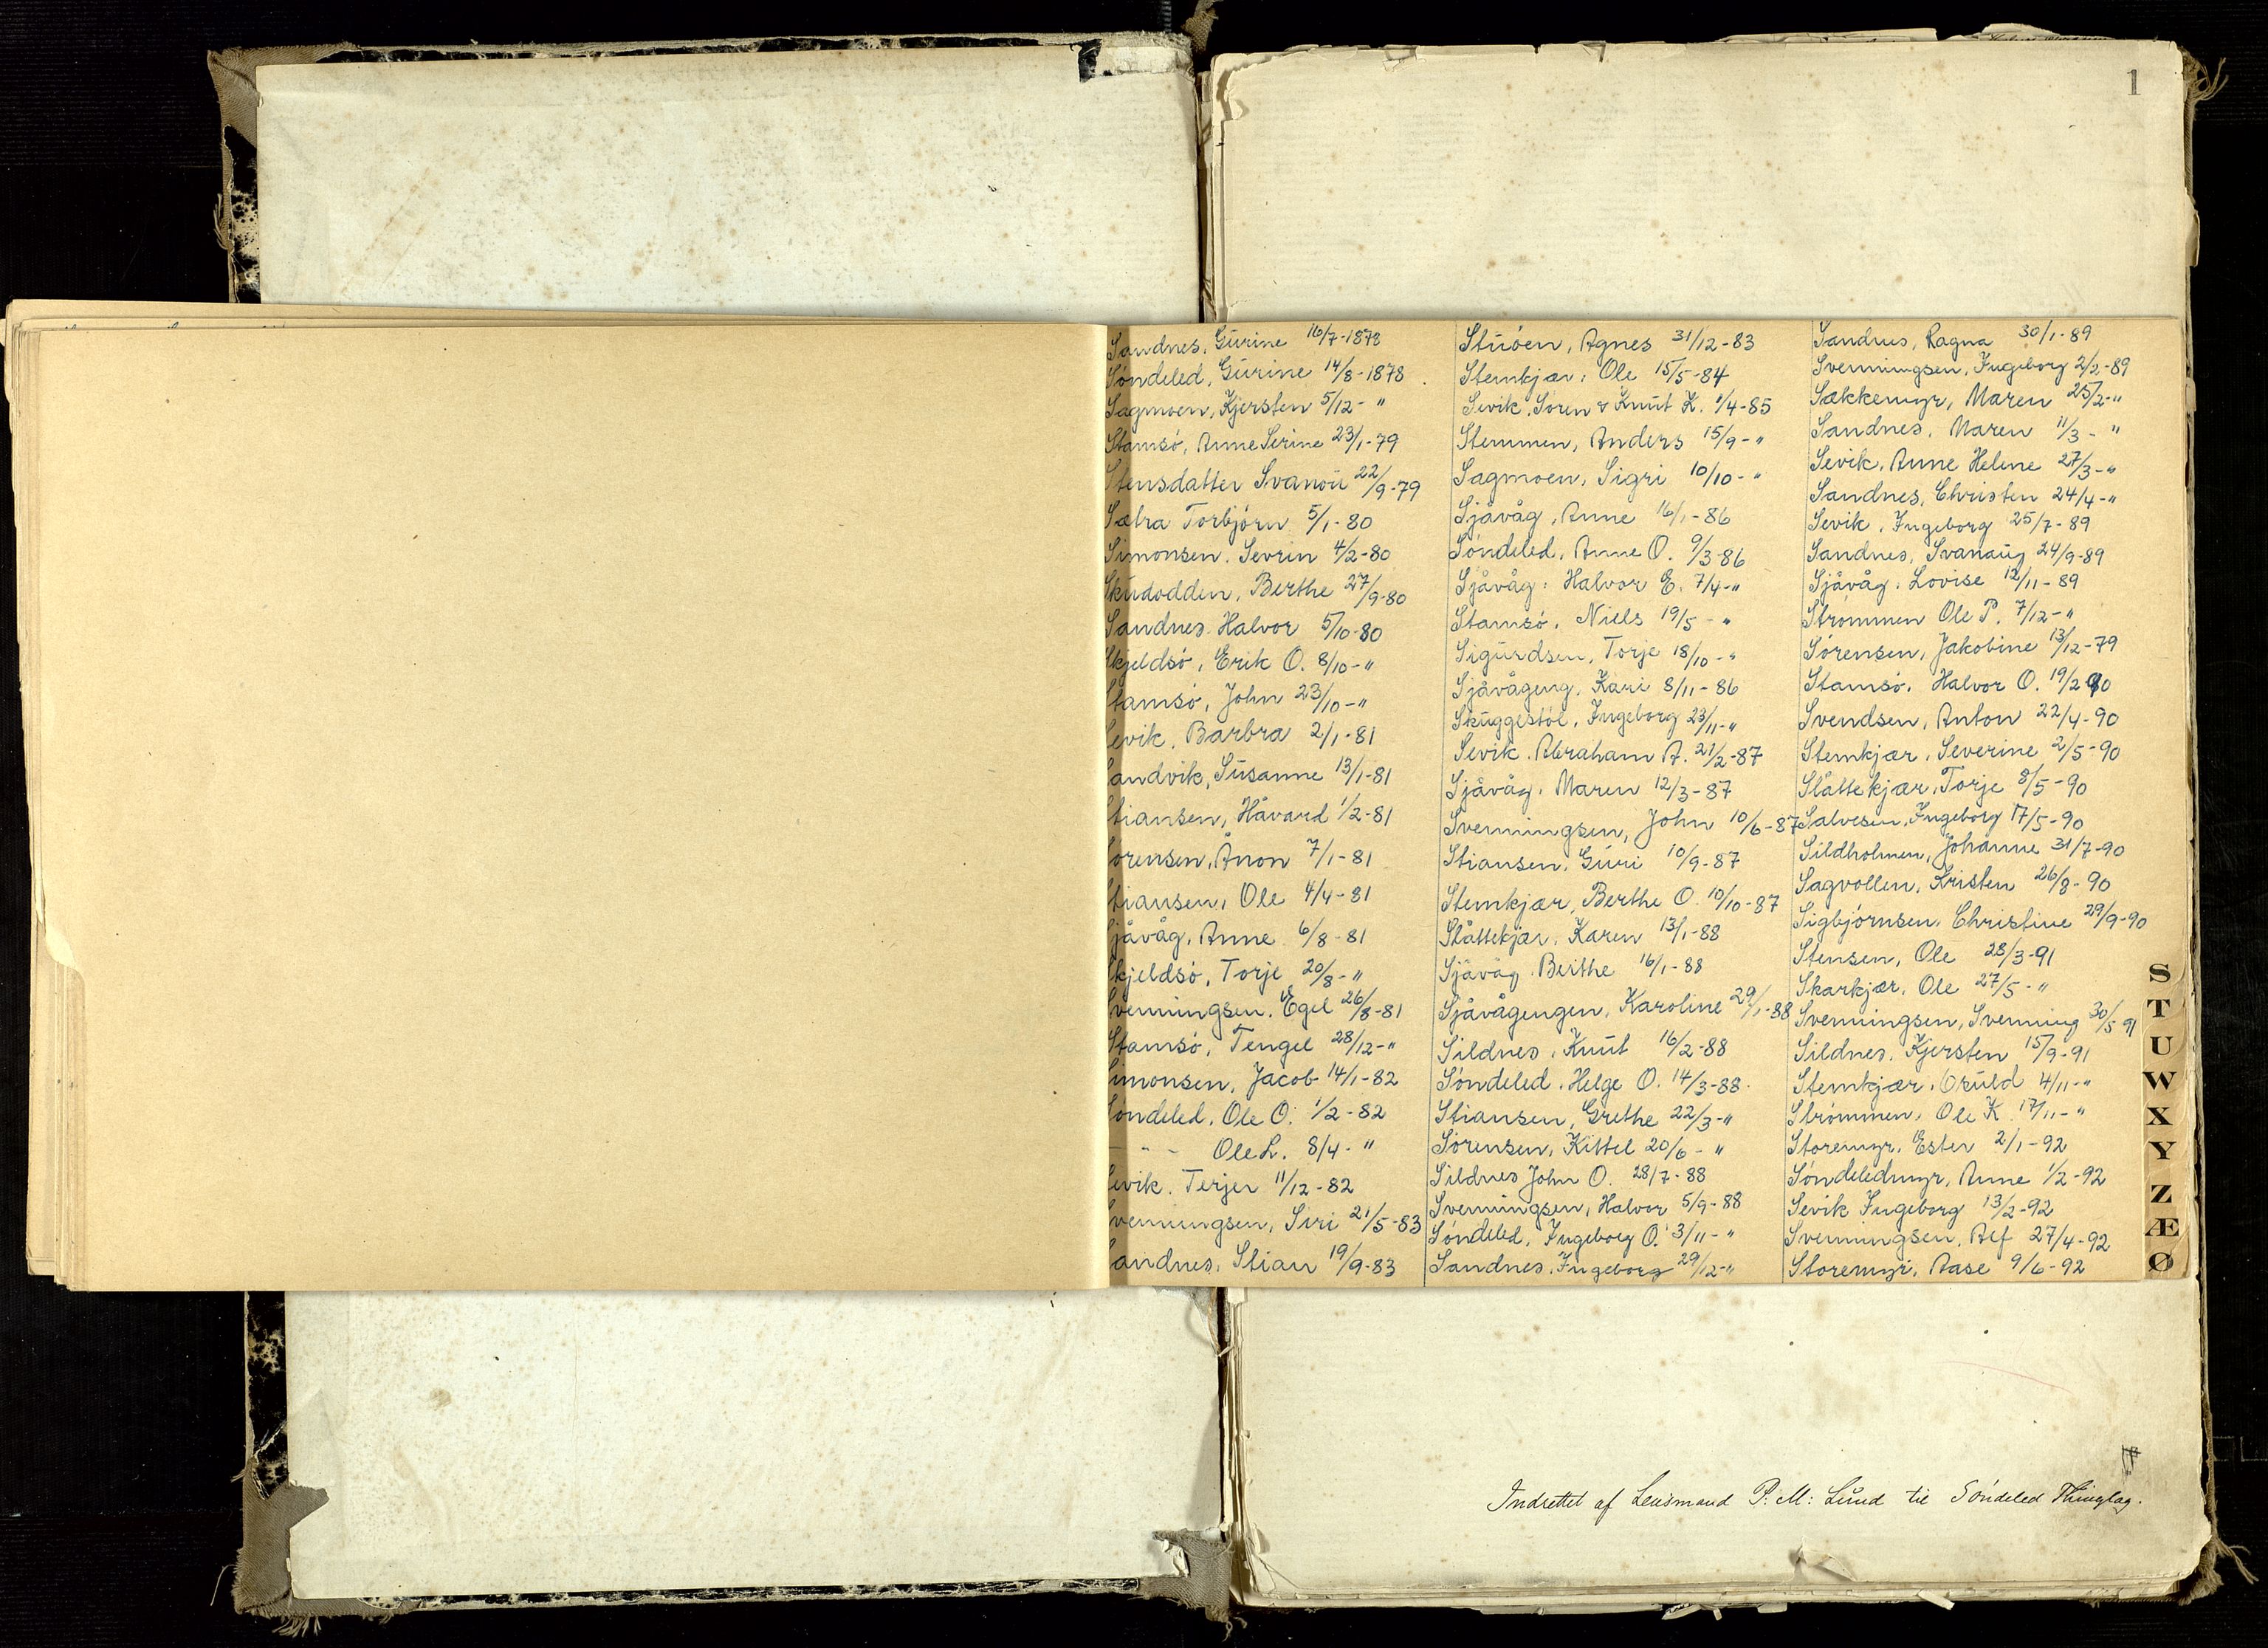 1
Sandnes, Gurine 16/7-1878
Søndeled, Gurine 14/8-1878
Sagmoen, Kjersten 5/12- "
Stamsø, Anne Serine 23/1-79
Stensdatter Svanou 22/9-79
Sætra Torbjørn 5/1-80
Simonsen, Sevrin 4/2-80
Skudodden, Berthe 27/9-80
Sandnes Halvor 5/10-80
Skjeldsø, Erik O. 8/10- "
Stamsø, John 23/10- "
Sevik, Barbra 2/1-81
Sandvik, Susanne 13/1-81
Stiansen, Håvard 1/2-81
Sørensen, Anon 7/1-81
Stiansen, Ole 4/4-81
Sjåvåg, Anne 6/8-81
Skjeldsø, Torje 20/8- "
Svenningsen, Egel 26/8-81
Stamsø, Tengel 28/12- "
Simonsen, Jacob 14/1-82
Søndeled, Ole O. 1/2-82
- " - Ole L. 8/4- "
Sevik, Terjer 11/12-82
Svenningsen, Siri 21/5-83
Sandnes, Stian 19/9-83
Stuøen, Agnes 31/12-83
Stemkjær, Ole 15/5-84
Sevik, Søren & Knut K. 1/4-85
Stemmen, Anders 15/9- "
Sagmoen, Sigri 10/10- "
Sjåvåg, Anne 16/1-86
Søndeled, Anne O. 9/3-86
Sjåvåg, Halvor E. 7/4- "
Stamsø, Niels 19/5- "
Sigurdsen, Torje 18/10- "
Sjåvågeng, Kari 8/11-86
Skuggestøl, Ingeborg 23/11- "
Sevik, Abraham A. 21/2-87
Sjåvåg, Maren 12/3-87
Svenningsen, John 10/6-87
Stiansen, Guri 10/9-87
Stemkjær, Berthe O. 10/10-87
Slåttekjær, Karen 13/1-88
Sjåvåg, Berthe 16/1-88
Sjåvågengen, Karoline 29/1-88
Sildnes, Knut 16/2-88
Søndeled, Helge O. 14/3-88
Stiansen, Grethe 22/3- "
Sørensen, Kittel 20/6- "
Sildnes John O. 28/7-88
Svenningsen, Halvor 5/9-88
Søndeled, Ingeborg O. 3/11- "
Sandnes, Ingeborg 29/12- "
Sandnes, Ragna 30/1-89
Svenningsen, Ingeborg 2/2-89
Sækkemyr, Maren 25/2- "
Sandnes, Maren 11/3- "
Sevik, Anne Helene 27/3- "
Sandnes, Christen 24/4- "
Sevik, Ingeborg 25/7-89
Sandnes, Svanaug 24/9-89
Sjåvåg, Lovise 12/11-89
Strømmen Ole P. 7/12- "
Sørensen, Jakobine 13/12-79
Stamsø, Halvor O. 19/2 90
Svendsen, Anton 22/4-90
Stemkjær, Severine 2/5-90
Slåttekjær, Torje 8/5-90
Salvesen, Ingeborg 17/5-90
Sildholmen, Johanne 31/7-90
Sagvollen, Kristen 26/8-90
Sigbjørnsen, Christine 29/9-90
Stensen, Ole 28/3-91
Skarkjær, Ole 27/5- "
Svenningsen, Svenning 30/5 91
Sildnes, Kjersten 15/9-91
Stemkjær, Oruld 4/11- "
Strømmen, Ole K 17/11- "
Storemyr, Ester 2/1-92
Søndeledmyr, Anne 1/2-92
Sevik Ingeborg 13/2-92
Svenningsen, Alf 27/4-92
Storemyr, Aase 9/6-92
S
T
U
W
X
Y
Z
Æ
Ø
Indrettet af Lensmand P: M: Lund til Søndeled Thinglag.